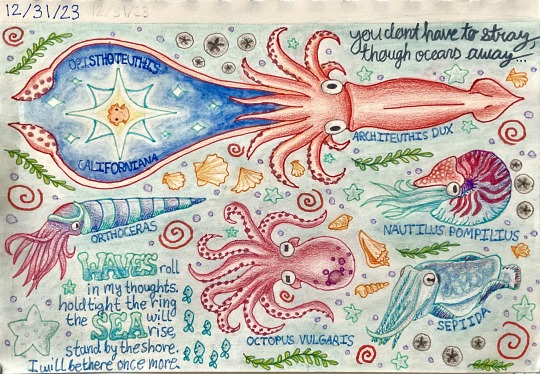 12/31/23
12/31/23
you dont have to stray,
though oceans away...
OPISTHOTEUTHIS
CALIFORNIANA
ARCHITEUTHIS DUX
ORTHOCERAS
NAUTILUS POMPILIUS
WAVES roll
in my thoughts.
hold tight the ring
the SEA will
rise,
stand by the shore.
I will be there once more.
OCTOPUS VULGARIS
SEPIIDA